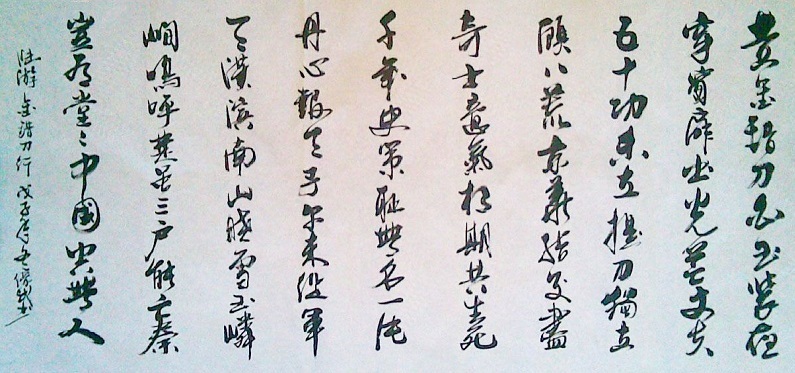 黄金錯刀白玉裝夜
穿窗扉出光芒丈夫
五十功未立提刀獨立
顧八荒京華結交盡
奇士意氣相期共生死
千年史策耻無名一片
丹心報天子尔来從軍
天漢滨南山曉雪玉嶙
峋嗚呼楚虽三户能亡秦
豈有堂〻中国空無人
陸游 金錯刀行 戊子年